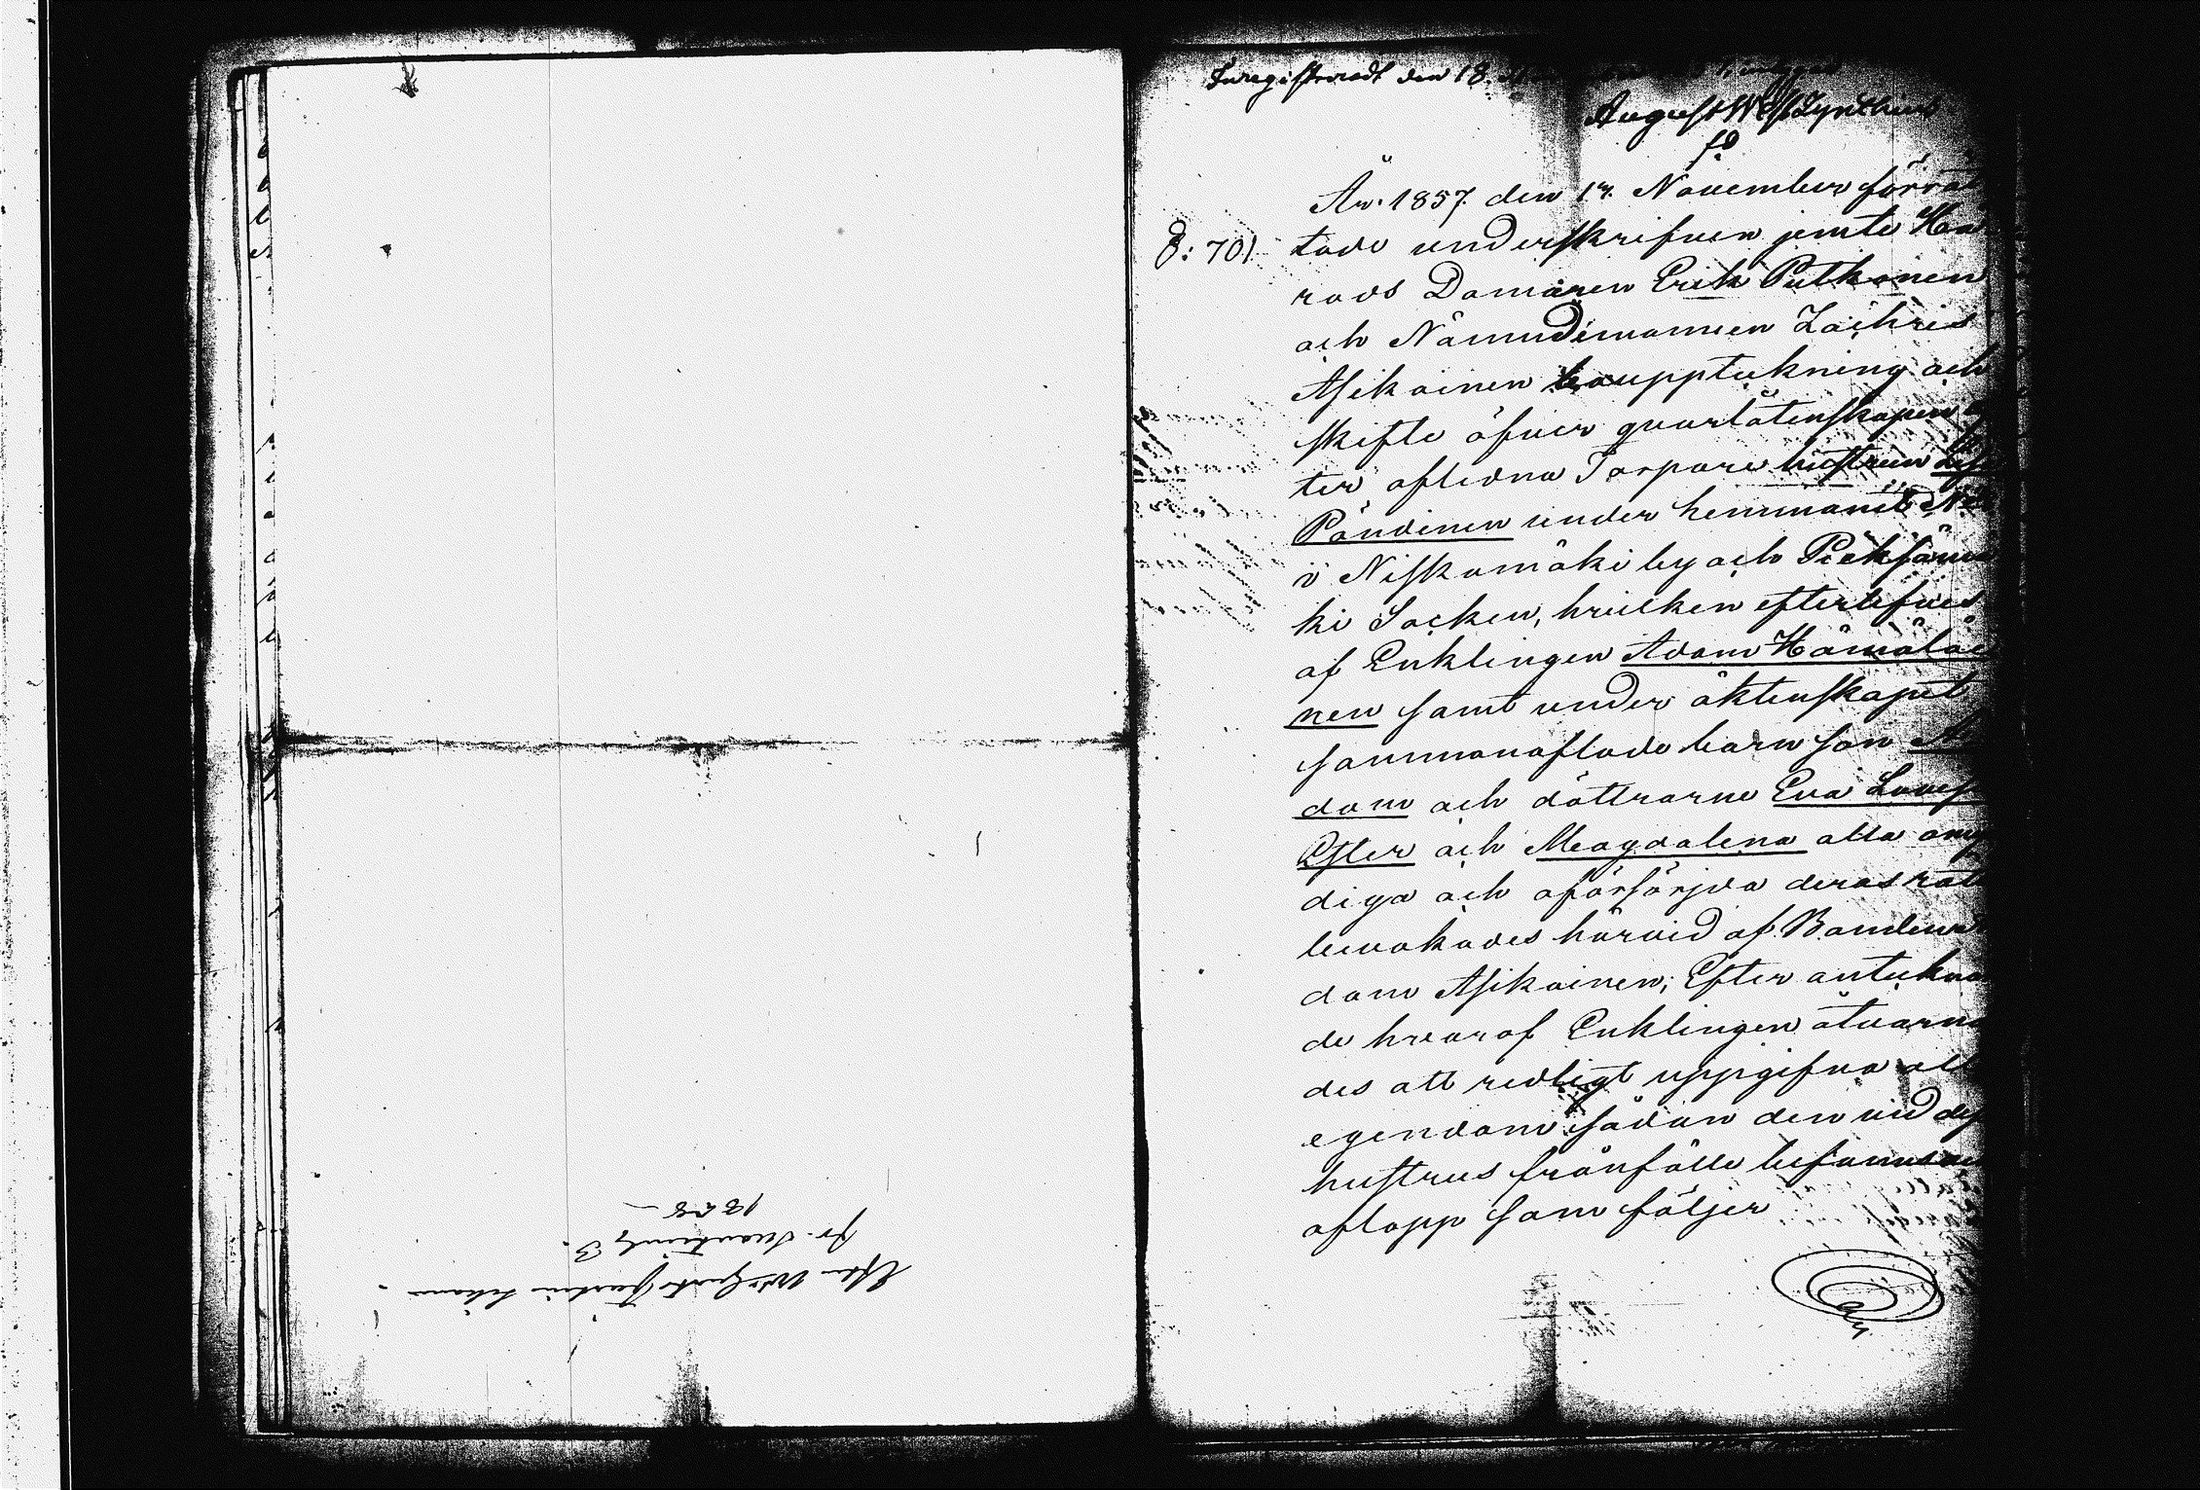 Inregistreradt den 18.
August Wilh
fd
År 1857 den 17. November förrät
8: 701
tade underskrifven jemte Hää
rads Domaren Erik Putkonen
och Nämndemannen Zachris
Asikainen bouppteckning och
skifte öfver qvarlåtenskapen ef
ter aflidna Torpare hustrun
Pöndinen under hemmanet N:o
i Niskamäki by och Pieksämä
ki Socken, hvilken efterlefves
af Enklingen Adam Hämäläi
nen samt under äktenskapet
sammanaflade barn son A
dam och döttrarne Eva Lovisa
Ester och Magdalena alla omyn
diga och oförsörjda deras rätt
bevakades härvid af Bonden A
dam Asikainen; Efter anteckna
de hvaraf Enklingen åtvarna
des att redligt uppgifva all
egendom sådan den vid dess
hustrus frånfälle befanns och
aflopp som följer
1828